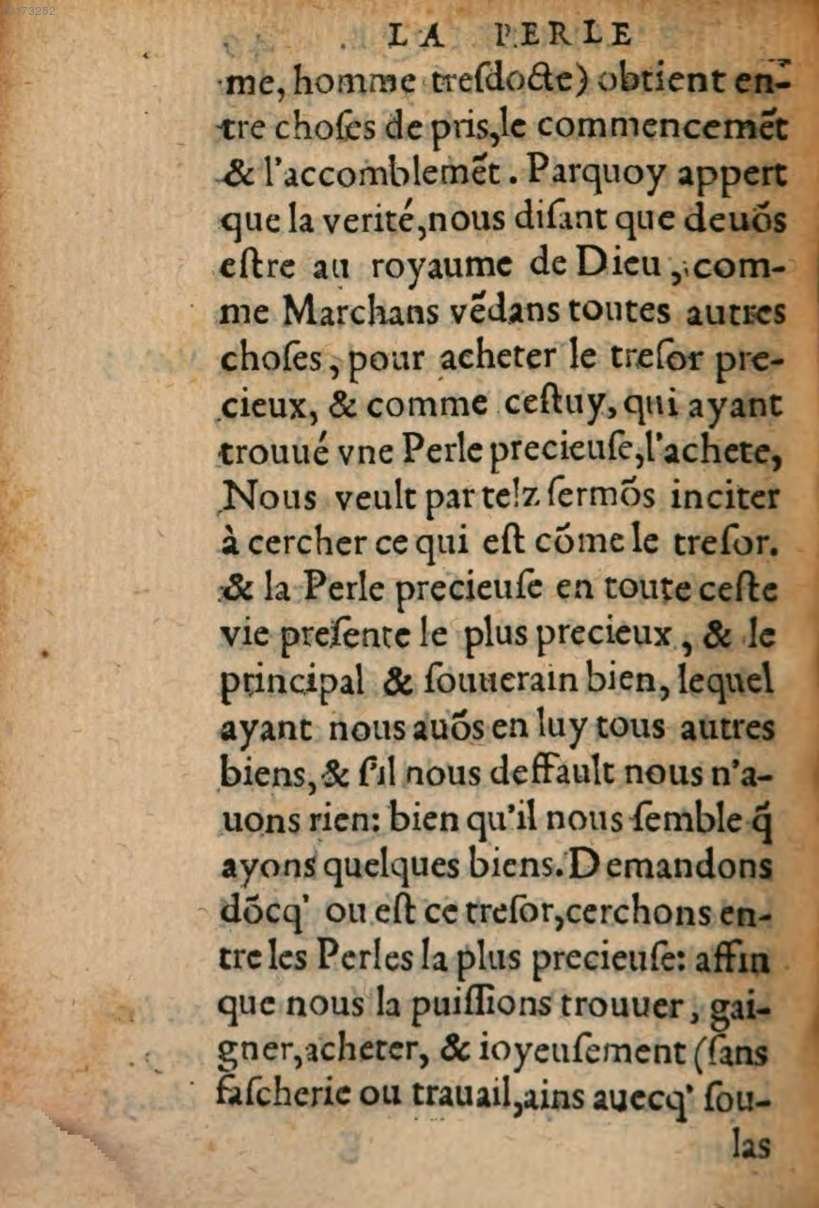 LA PERLE
me, homme treſdocte) obtient en-
tre choſes de pris,le commencemẽt
& l'accomblemẽt. Parquoy appert
que la verité,nous diſant que deuõs
eſtre au royaume de Dieu, com-
me Marchans vẽdans toutes autres
choſes, pour acheter le treſor pre-
cieux, & comme ceſtuy, qui ayant
trouué vne Perle precieuſe,l'achete,
Nous veult par telz ſermõs inciter
à cercher ce qui eſt cõme le treſor.
& la Perle precieuſe en toute ceſte
vie preſente le plus precieux, & le
principal & ſouuerain bien, lequel
ayant nous auõs en luy tous autres
biens, & ſ'il nous deffault nous n'a-
uons rien: bien qu'il nous ſemble q̃
ayons quelques biens. Demandons
dõcq' ou eſt ce treſor,cerchons en-
tre les Perles la plus precieuſe: affin
que nous la puiſſions trouuer, gai-
gner,acheter, & ioyeuſement (ſans
faſcherie ou trauail,ains auecq' ſou-
las